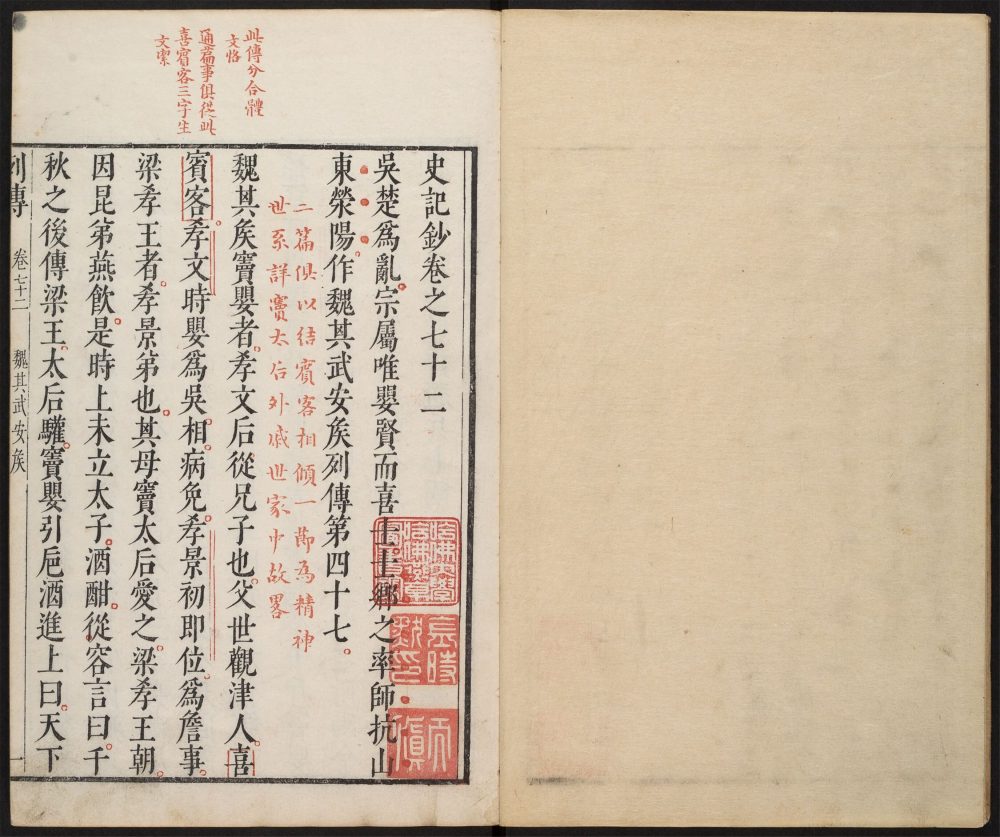 此傳分合體
文恪
通篇事俱從此
喜賓客三字生
文潔
史記鈔卷之七十二
吳楚爲亂宗屬唯嬰賢而喜士士鄉之率師抗山
東滎陽作魏其武安矦列傳第四十七
二篇俱以結賓客相傾一節為精神
世系詳竇太后外戚世家中故畧
魏其矦竇嬰者孝文后從兄子也父世觀津人喜
賓客孝文時嬰爲吳相病免孝景初即位爲詹事
梁孝王者孝景弟也其母竇太后愛之梁孝王朝
因昆弟燕飲是時上未立太子酒酣從容言曰千
秋之後傳梁王太后驩竇嬰引巵酒進上曰天下
列傳 卷七十二 魏其武安矦 一